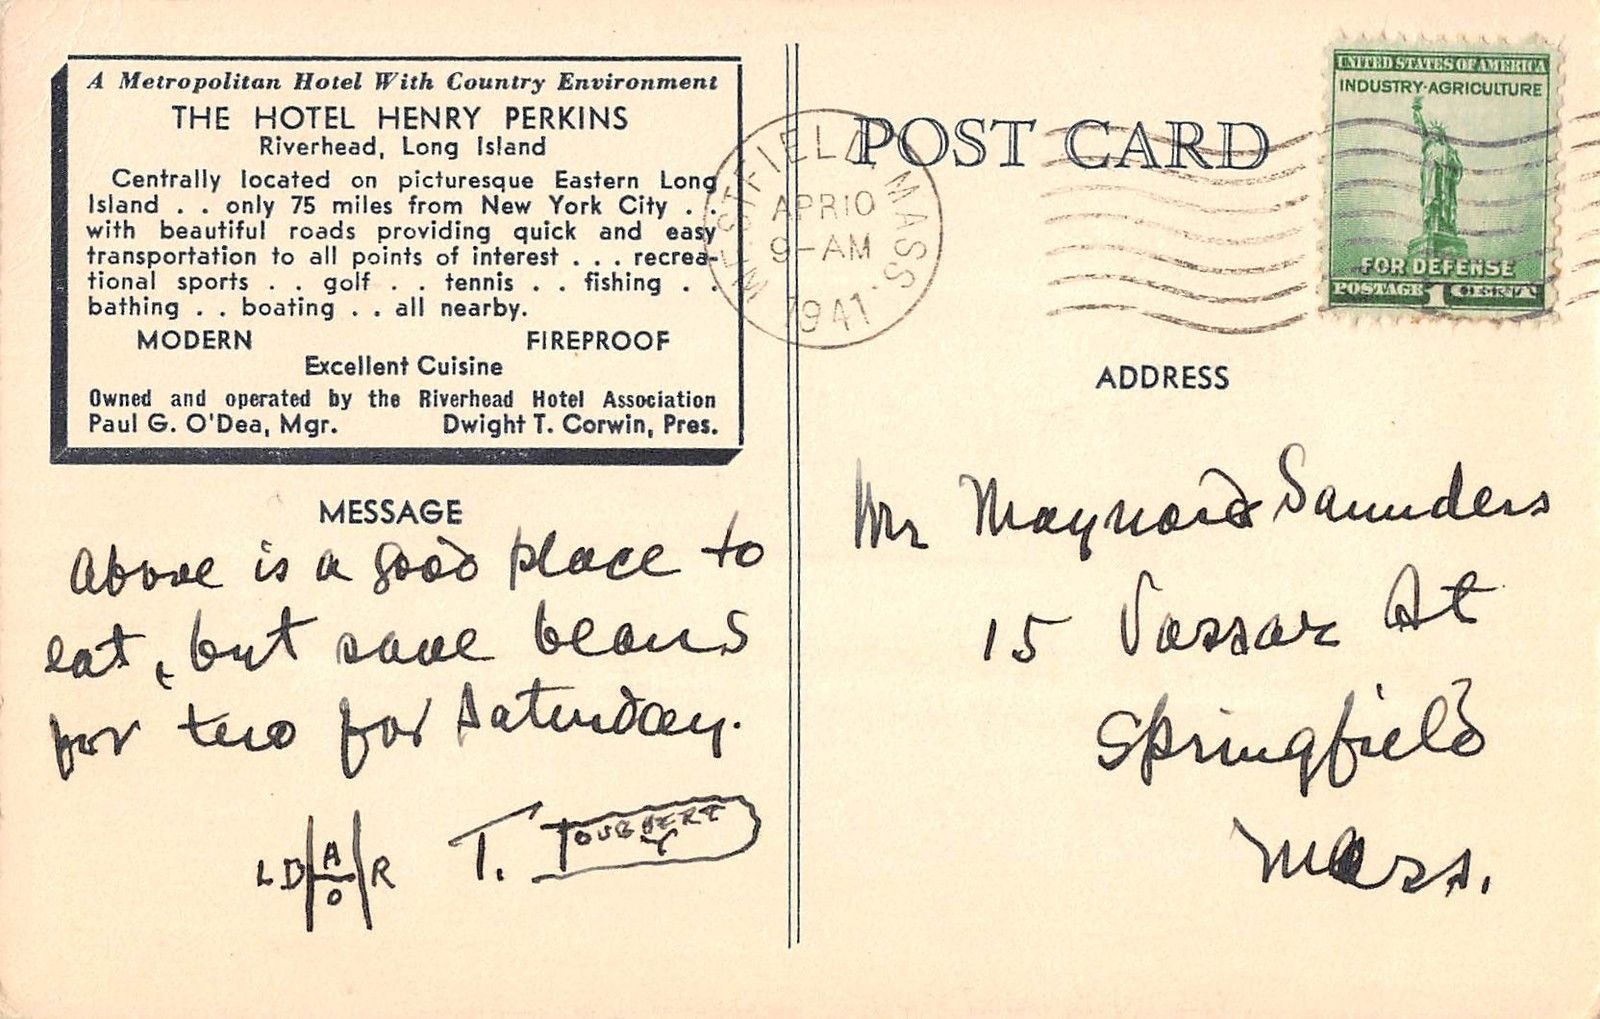 A Metropolitan Hotel With Country Environment
THE HOTEL HENRY PERKINS
Riverhead, Long Island
Centrally located on picturesque Eastern Long
Island . . only 75 miles from New York City . .
with beautiful roads providing quick and easy
transportation to all points of interest . . . recrea-
tional sports . . golf . . tennis . . fishing . .
bathing . . boating . . all nearby.
MODERN FIREPROOF
Excellent Cuisine
Owned and operated by the Riverhead Hotel Association
Paul G. O'Dea, Mgr. Dwight T. Corwin, Pres.
MESSAGE
Above is a good place to
eat, but save beans
for two for Saturday.
L D A O R T.
POST CARD
WESTFIELD MASS.
APR 10
9-AM
1941
UNITED STATES OF AMERICA
INDUSTRY·AGRICULTURE
FOR DEFENSE
POSTAGE 1 CENT
ADDRESS
Mr Maynard Saunders
15 Vassar St
Springfield
Mass.